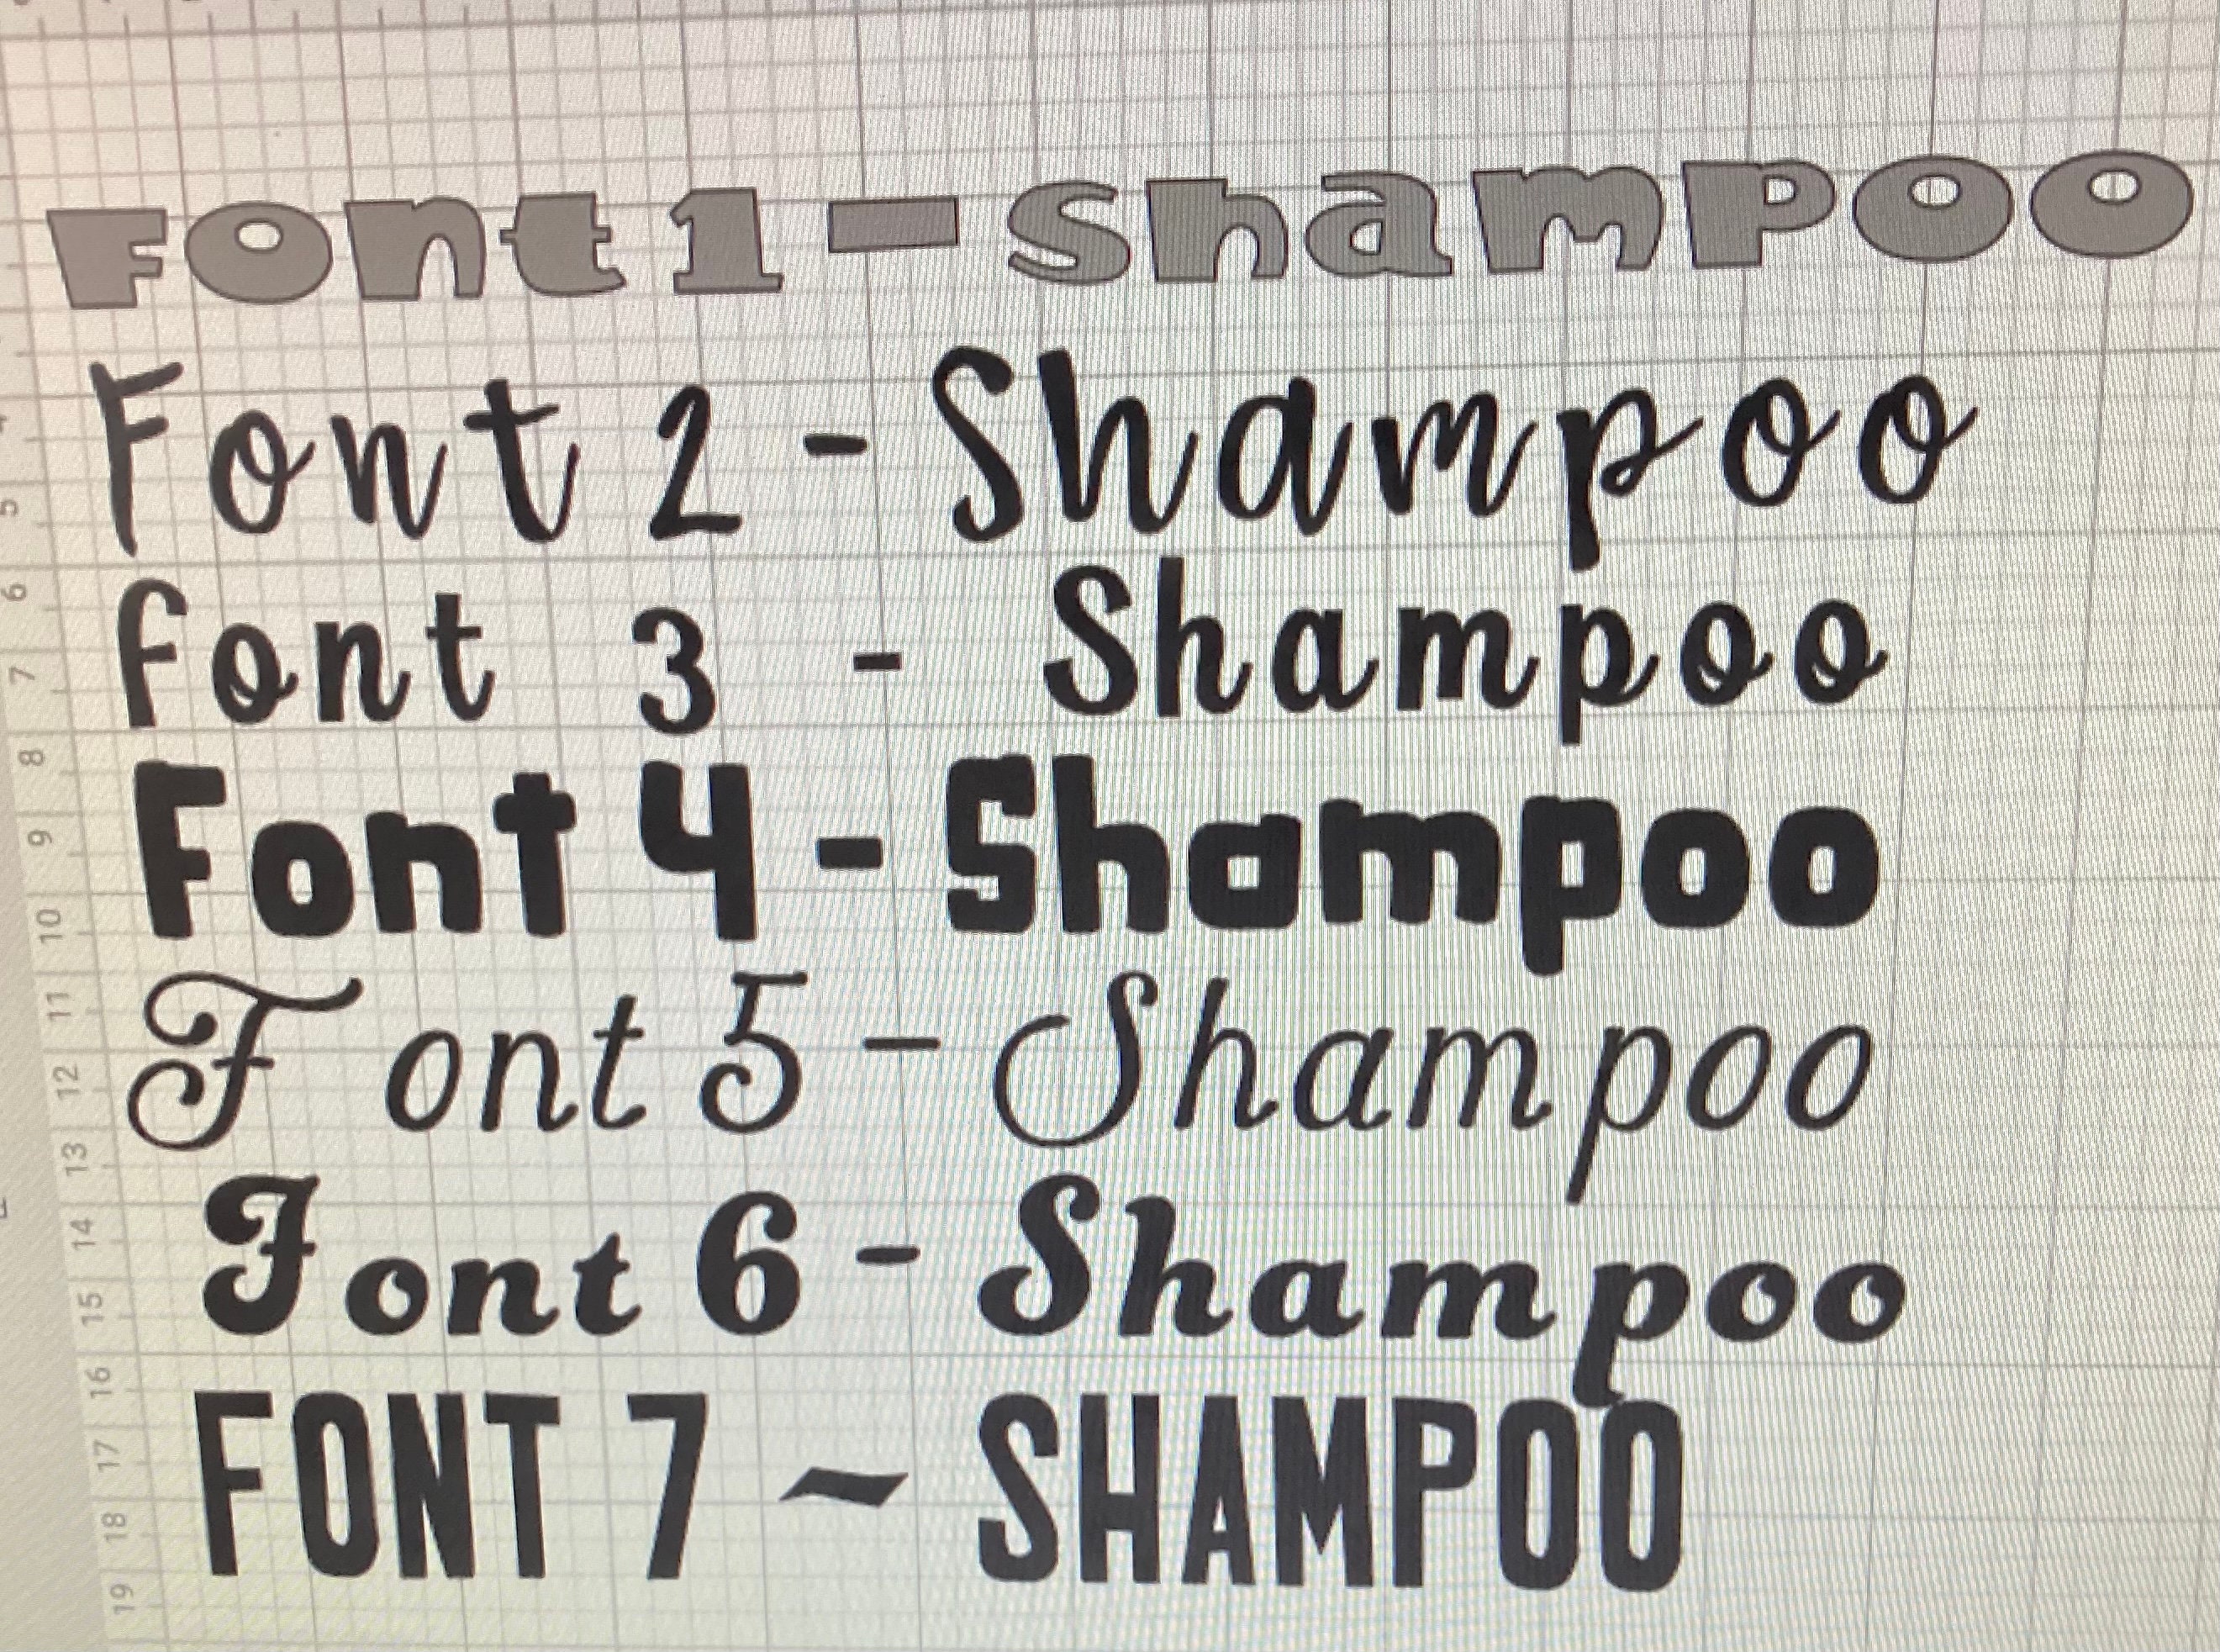 Font 1 - Shampoo
Font 2 - Shampoo
font 3 - Shampoo
Font 4 - Shampoo
Font 5 - Shampoo
Font 6 - Shampoo
FONT 7 ~ SHAMPOO
5
6
7
8
9
10
11
12
13
14
15
16
17
18
19